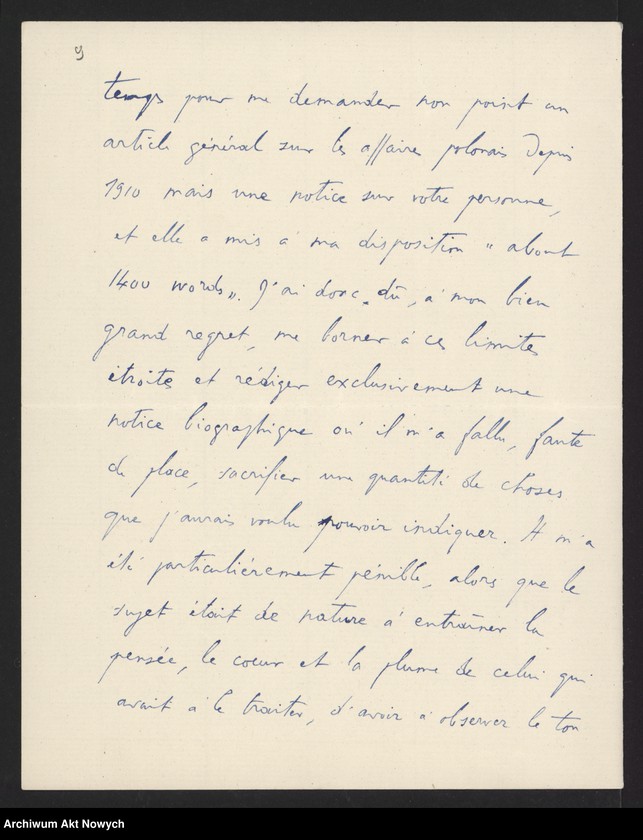 9
temps pour me demander non point un
article général sur les affaires polonais depuis
1910 mais une notice sur votre personne,
et elle a mis à ma disposition " about
1400 words". J'ai donc dû, à mon bien
grand regret, me borner à ces limites
étroites et rédiger exclusivement une
notice biographique où il m'a fallu, faute
de place, sacrifier une quantité de choses
que j'aurais voulu pouvoir indiquer. Il m'a
été particulièrement pénible, alors que le
sujet était de nature à entraîner la
pensée, le coeur et la plume de celui qui
avait à le traiter, d'avoir à observer le ton
Archiwum Akt Nowych